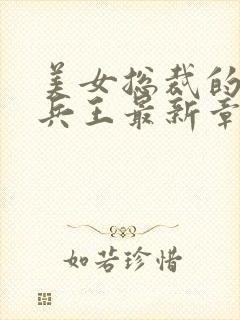 美女总裁的
兵王最新章
如若珍惜